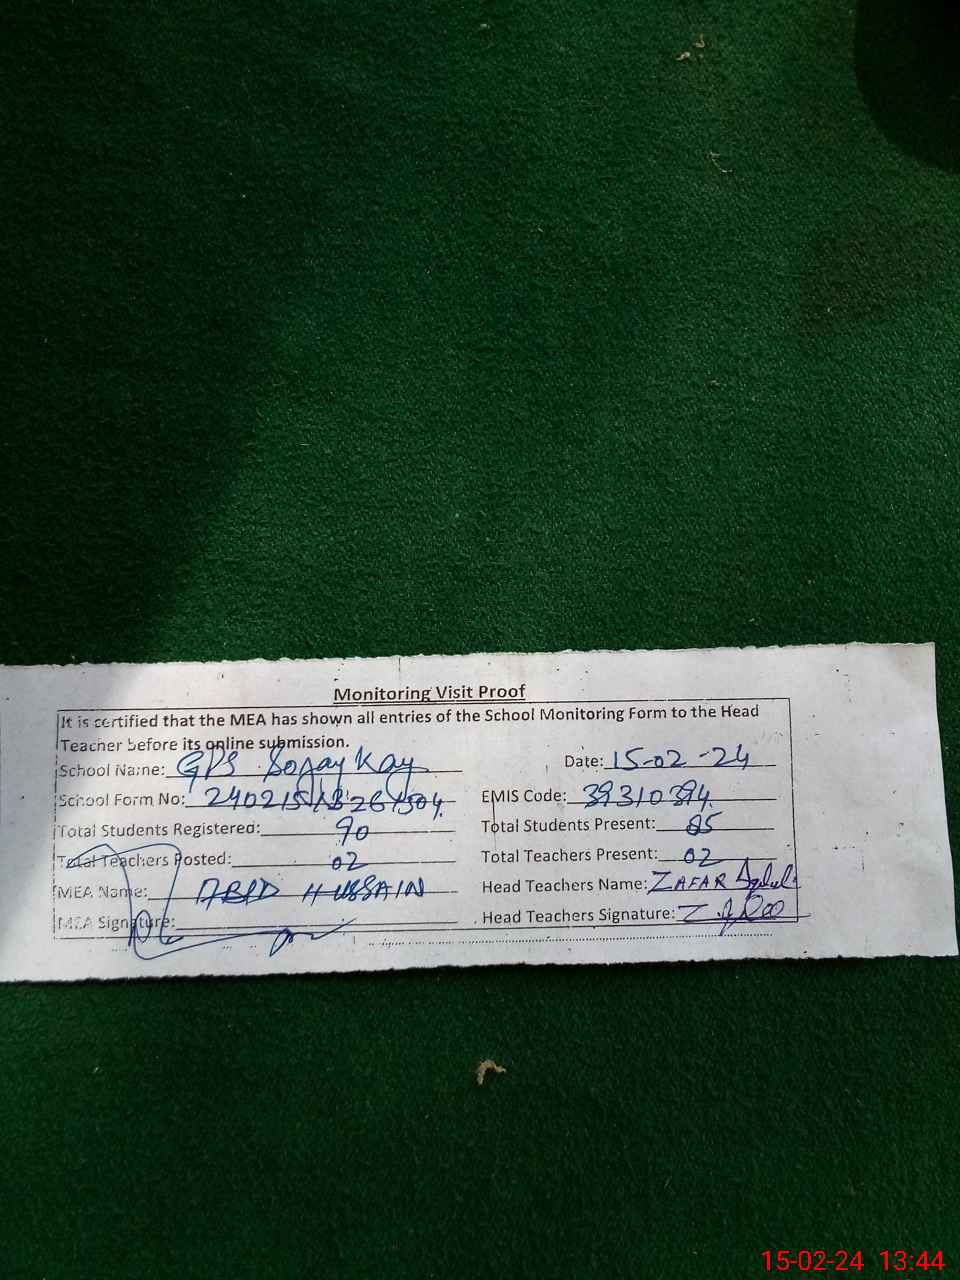 Monitoring Visit Proof
It is certified that the MEA has shown all entries of the School Monitoring Form to the Head
Teacher before its online submission.
School Name: GPS Sojay Kay Date: 15-02-24
School Form No: EMIS Code: 39310394
Total Students Registered: 90 Total Students Present: 85
Total Teachers Posted: 02 Total Teachers Present: 02
MEA Name: ABID HUSSAIN Head Teachers Name: ZAFAR
MEA Signature: Head Teachers Signature:
15-02-24 13:44